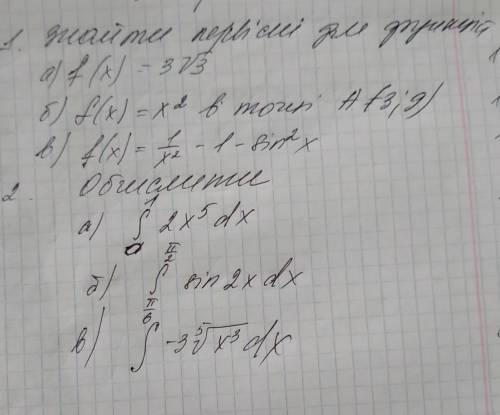 1. Знайти первісні для функцій,
а) f(x) = 3√3
б) f(x) = x² в точці A(3; 9)
в) f(x) = 1/x² - 1 - sin²x
2. Обчислити
а) ∫₀¹ 2x⁵ dx
б) ∫_{π/6}^{π/2} sin 2x dx
в) ∫ -3 ⁵√x³ dx